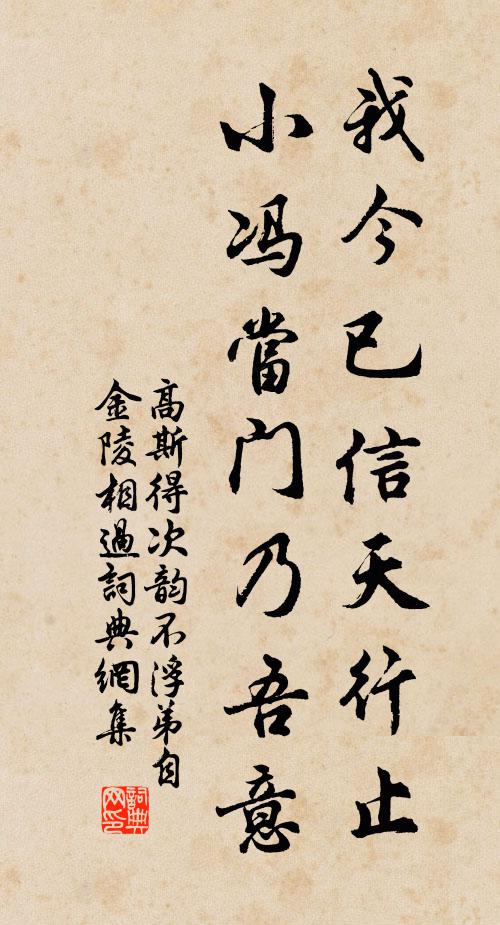 我今已信天行止
小冯當门乃吾意
高斯得次韵不浮弟自
金陵相過詞典網集
詞典網印